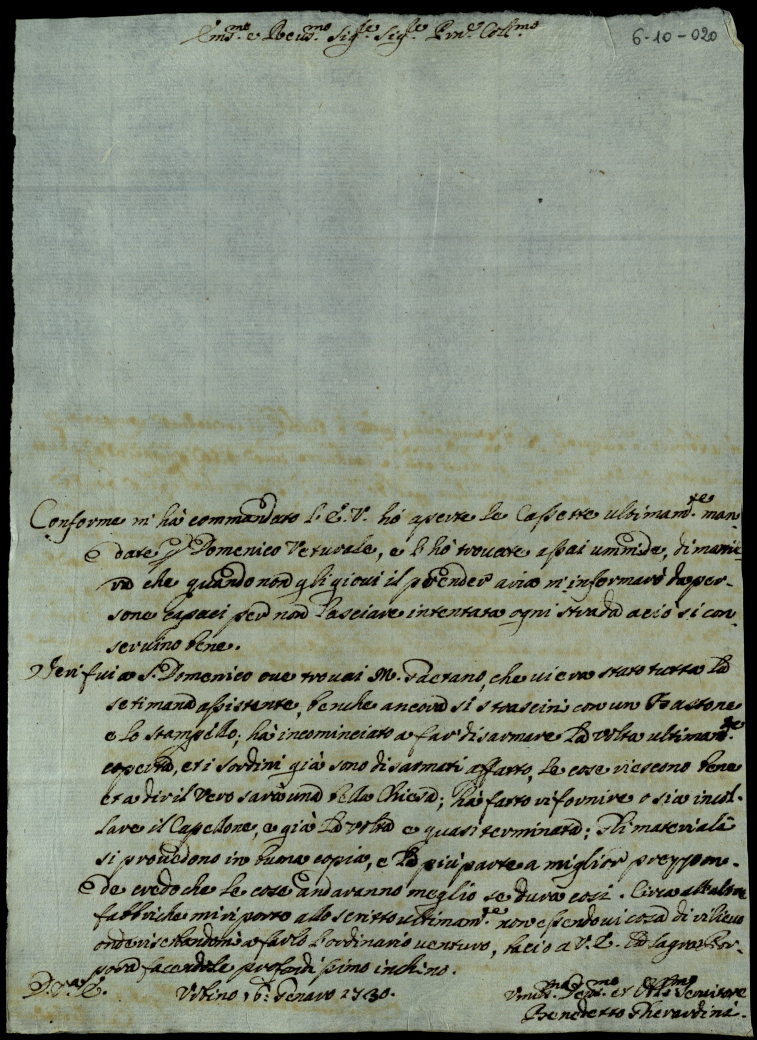 Em.mo e Reu.mo Sig.re Sig.re Prn.e Coll.mo
6-10-020
Conforme m' hà commandato l' E.V. hò aperte le Cassette ultimam.te man
date p Domenico Veturale, e l' hò trovate assai ummide, di manie
ra che quando non gli giovi il prender aria m' informarò da per-
sone capaci per non lasciare intentata ogni strada acciò si con
servino bene.
Ieri fui a S. Domenico ove trovai M. Gaetano, che vi era stato tutta la
setimana assistente, benche ancora si strascini con un Bastone
e lo stampello; hà incominciato a far disarmare la volta ultimam.te
coperta, et i sordini già sono disarmati affatto, le cose riescono bene
et a dir il vero sarà una bella Chiesa; hà fatto rifornire o sia incol-
lare il Capellone, e già la volta e quasi terminata; Gli materiali
si provedono in buona copia, e la più parte a miglior prezzo on-
de credo che le cose andaranno meglio se dura così. Circa all'altre
fabbriche mi riporto allo scritto ultimam.te non essendovi cosa di rilievo
onde riserbandomi a farlo l' ordinario venturo, bacio a V.E. la Sagra Por-
pora facendole profondissimo inchino.
D. V.ra E. Urbino 16: Genaro 1730.
Umil.mo Deu.mo et Obb.mo Servitore
Benedetto Gherardini.